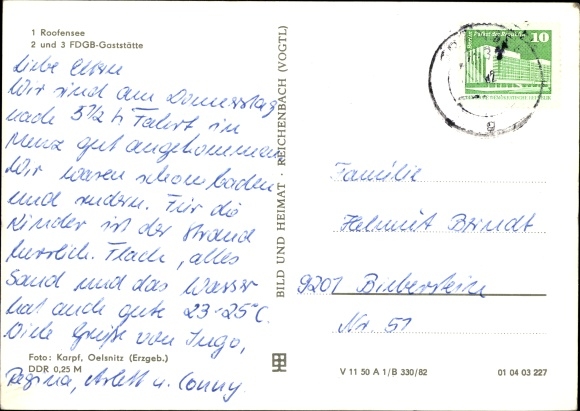 1 Roofensee
2 und 3 FDGB-Gaststätte
Liebe Eltern
Wir sind am Donnerstag
nach 5 1/2 h Fahrt in
Menz gut angekommen
Wir waren schon baden
und rudern. Für die
Kinder ist der Strand
herrlich. Flach, alles
Sand und das Wasser
hat auch gute 23-25°C.
Viele Grüße von Ingo,
Regina, Arlett u. Conny.
Foto: Karpf, Oelsnitz (Erzgeb.)
DDR 0,25 M
BILD UND HEIMAT · REICHENBACH (VOGTL)
10
Palast der Republik
Familie
Helmut Brindt
9201 Bieberstein
Nr. 51
V 11 50 A 1/B 330/82
01 04 03 227